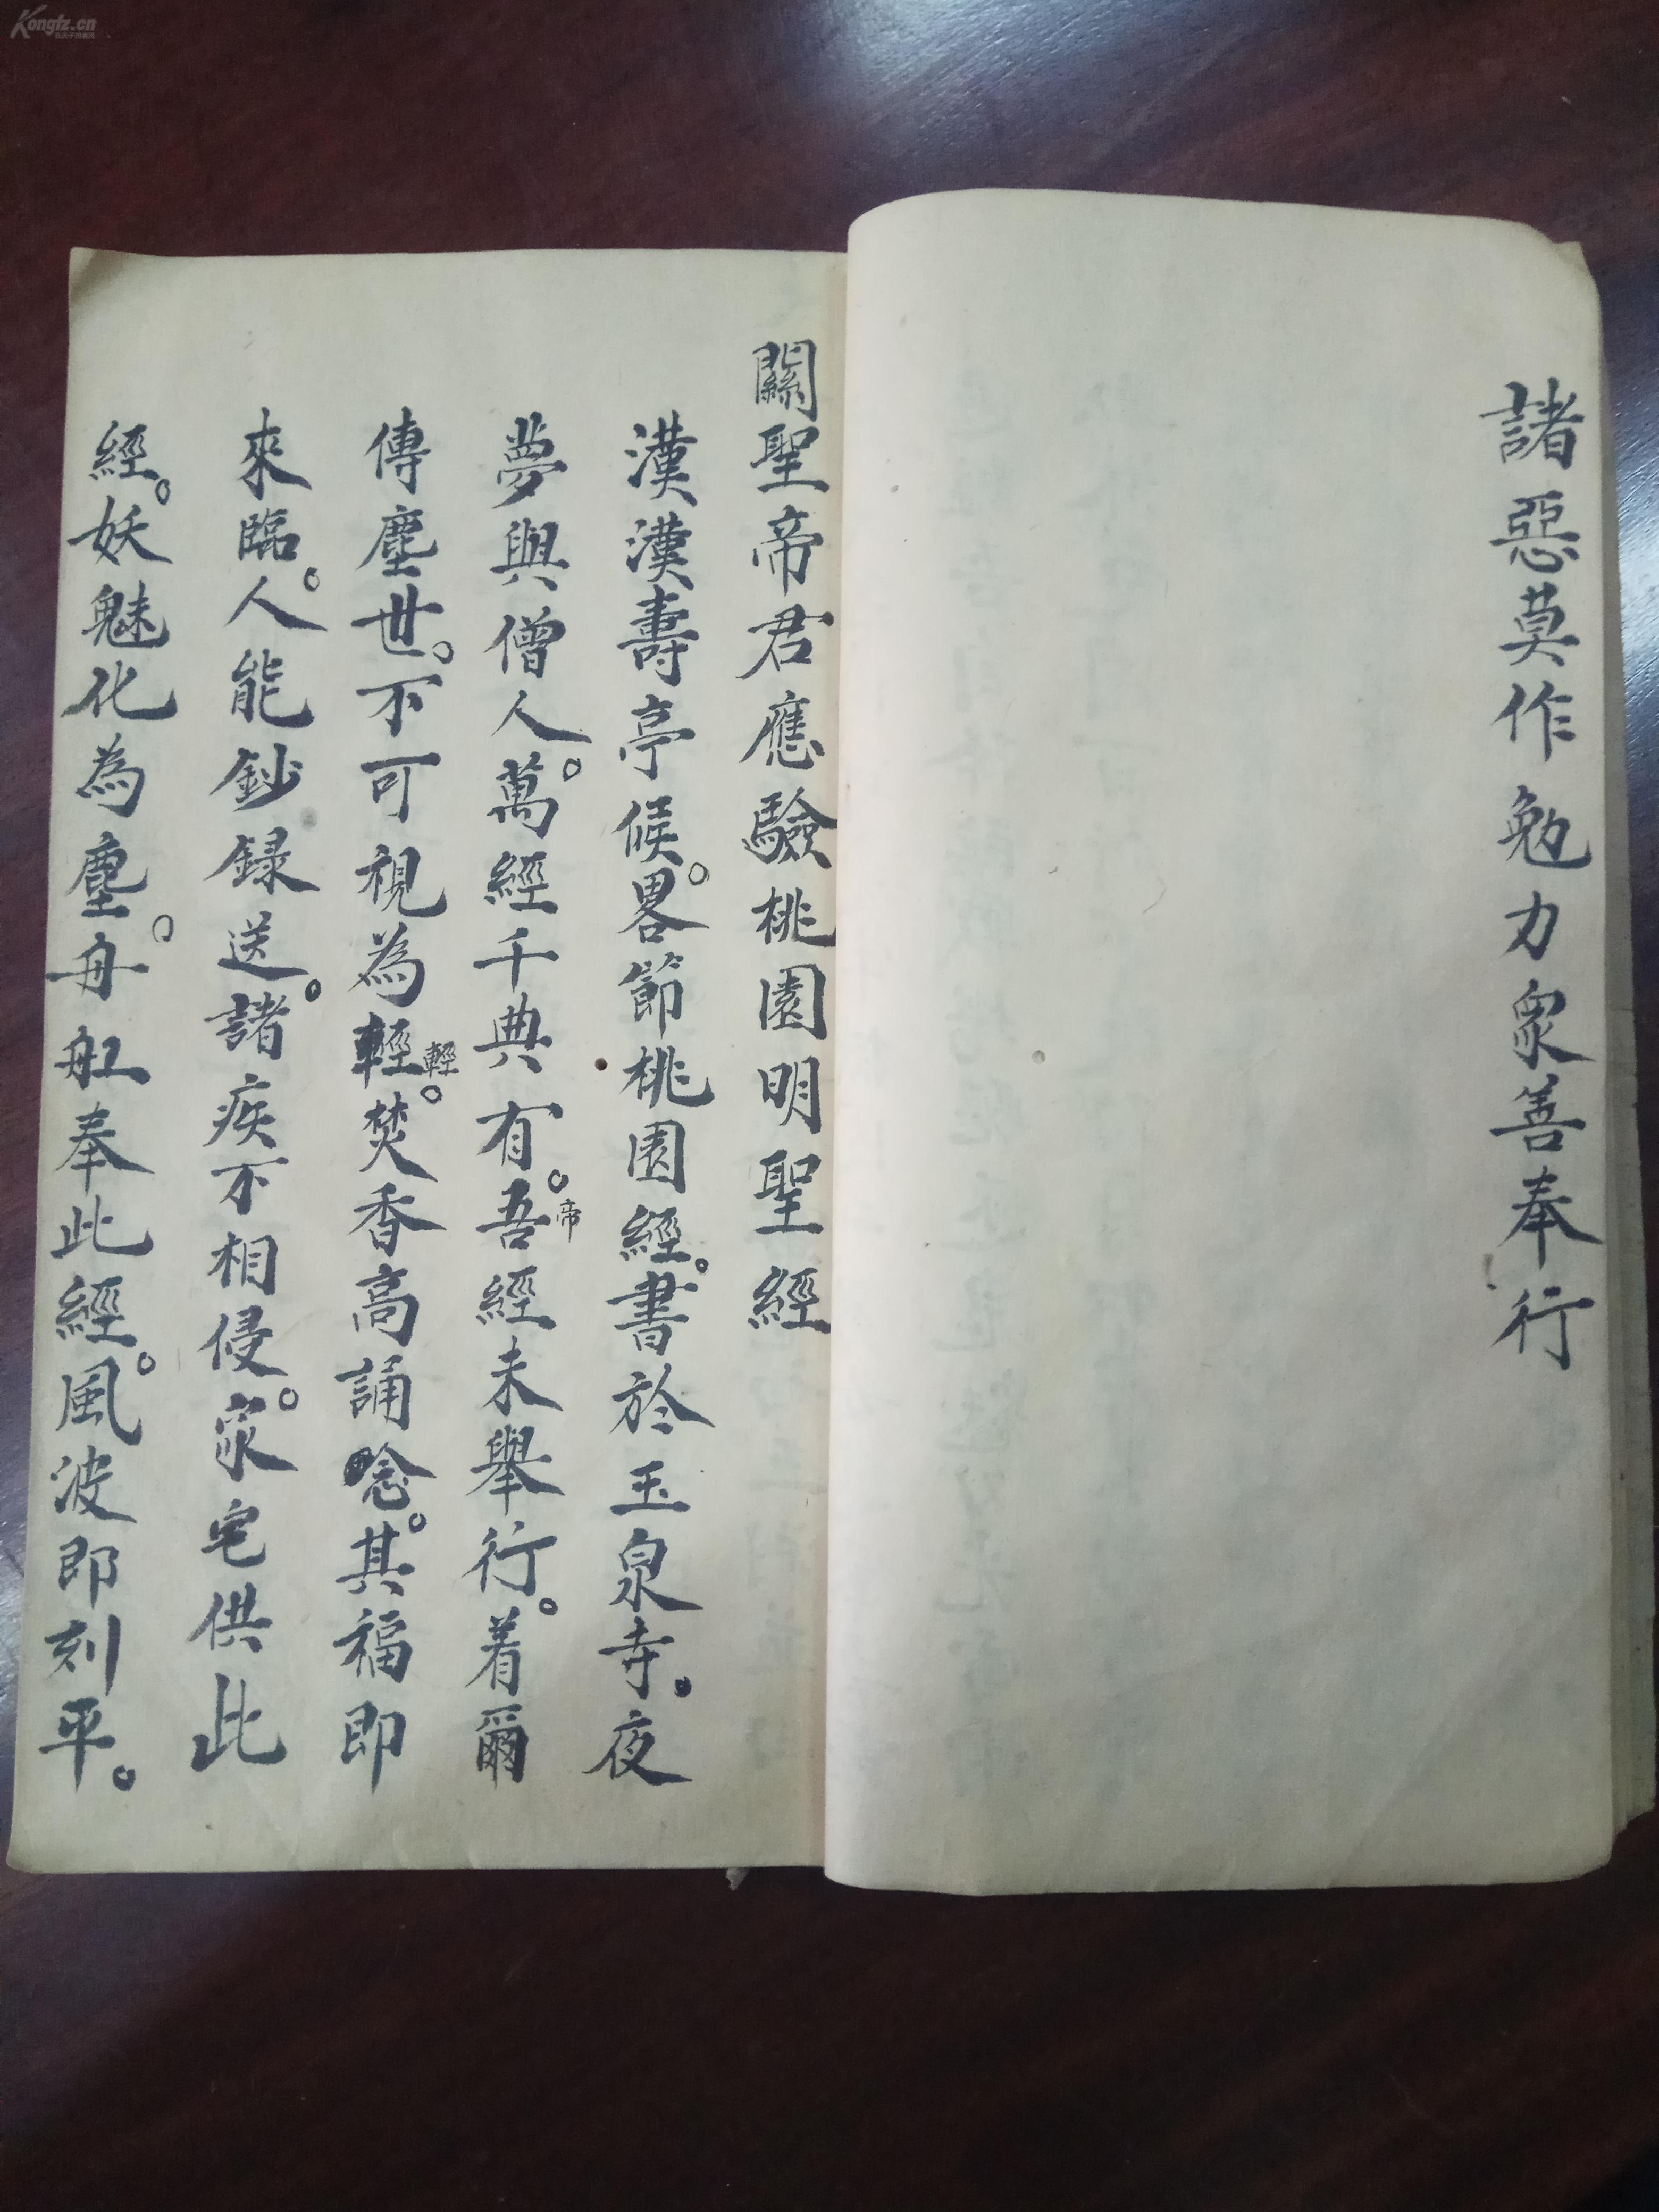 諸惡莫作勉力眾善奉行
關聖帝君應驗桃園明聖經
漢漢壽亭候。畧節桃園經。書於玉泉寺。夜
夢與僧人。萬經千典有。吾帝經未舉行。着爾
傳塵世。不可視為輕輕。焚香高誦唸。其福即
來臨。人能鈔録送。諸疾不相侵。家宅供此
經。妖魅化為塵。舟舡奉此經。風波即刻平。
Kongfz.cn